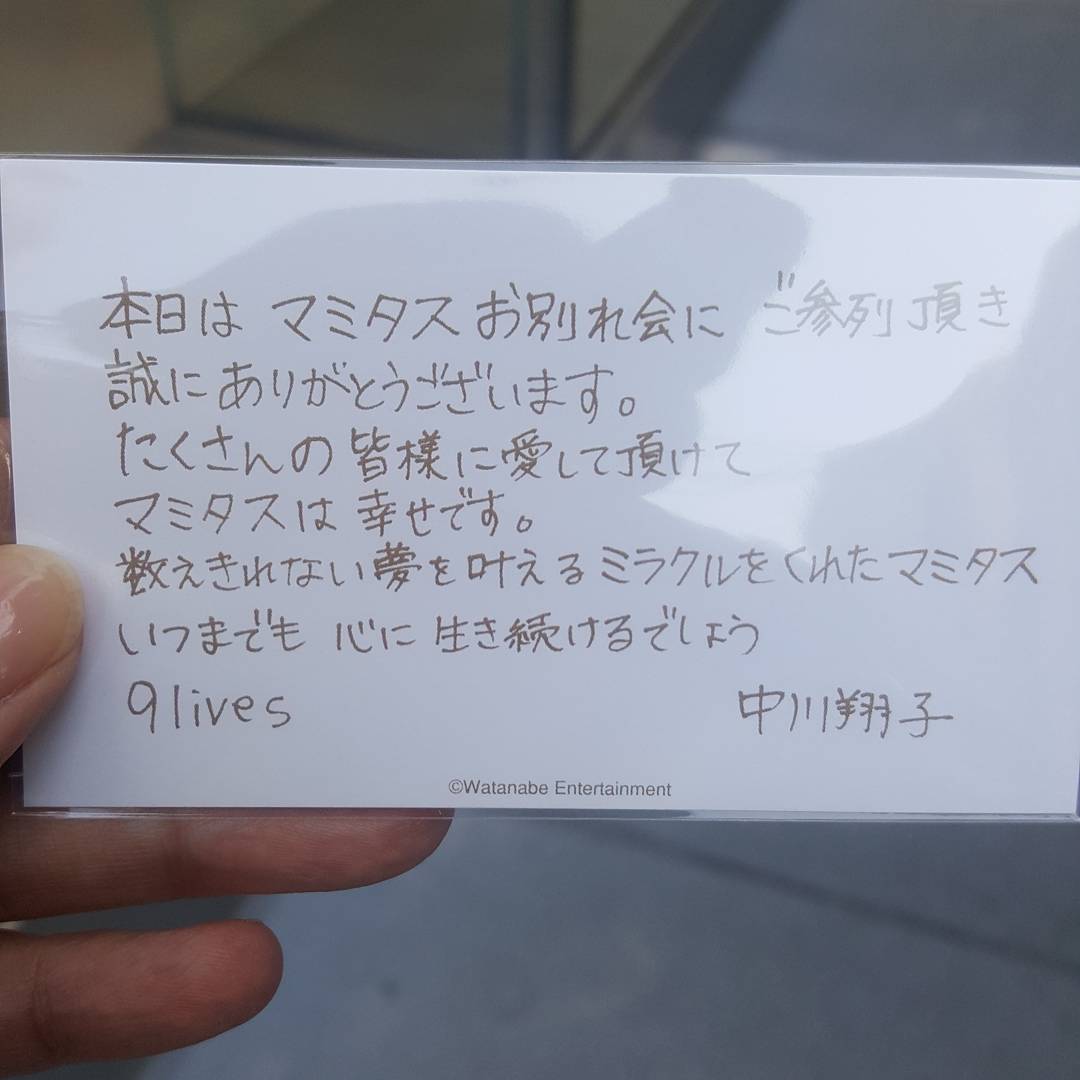 本日は マミタス お別れ会に ご参列 頂き
誠に ありがとうございます。
たくさんの 皆様に 愛して 頂けて
マミタスは 幸せです。
数えきれない 夢を 叶える ミラクルを くれた マミタス
いつまでも 心に 生き続けるでしょう
9lives 中川翔子
©Watanabe Entertainment